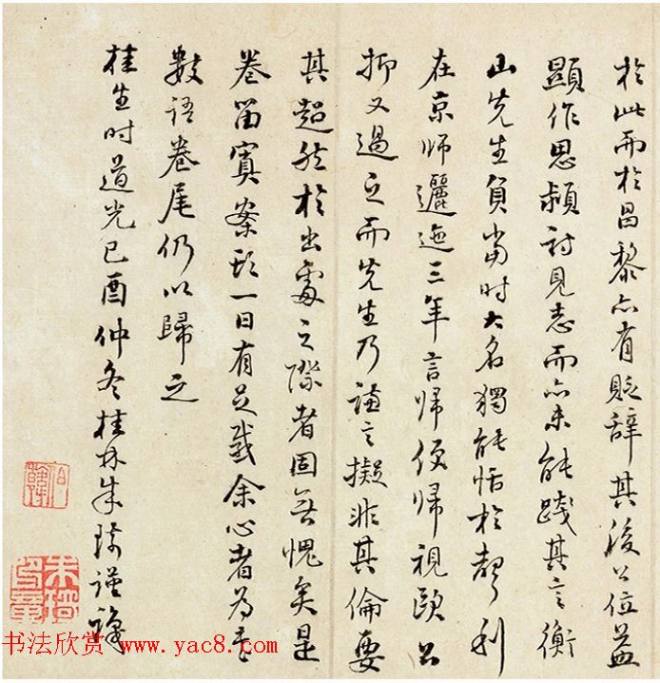 於此而於昌黎亦有貶辭其後公位益
顯作思潁詩見志而亦未能踐其言衡
山先生負當时大名獨能恬於聲利
在京师邐迤三年言歸便歸視歐公
抑又過之而先生乃謙言擬非其倫要
其超然於出處之際者固無愧矣是
卷留寘案頭一日有足感余心者為書
數语卷尾仍以歸之
桂生时道光己酉仲冬桂林朱琦谨識
书法欣赏 www.yac8.com